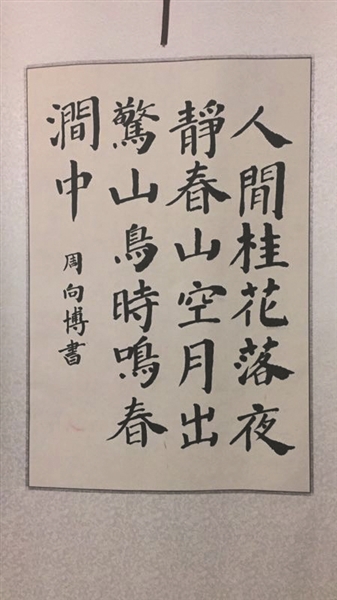 人閒桂花落夜
靜春山空月出
驚山鳥時鳴春
澗中
周向博書